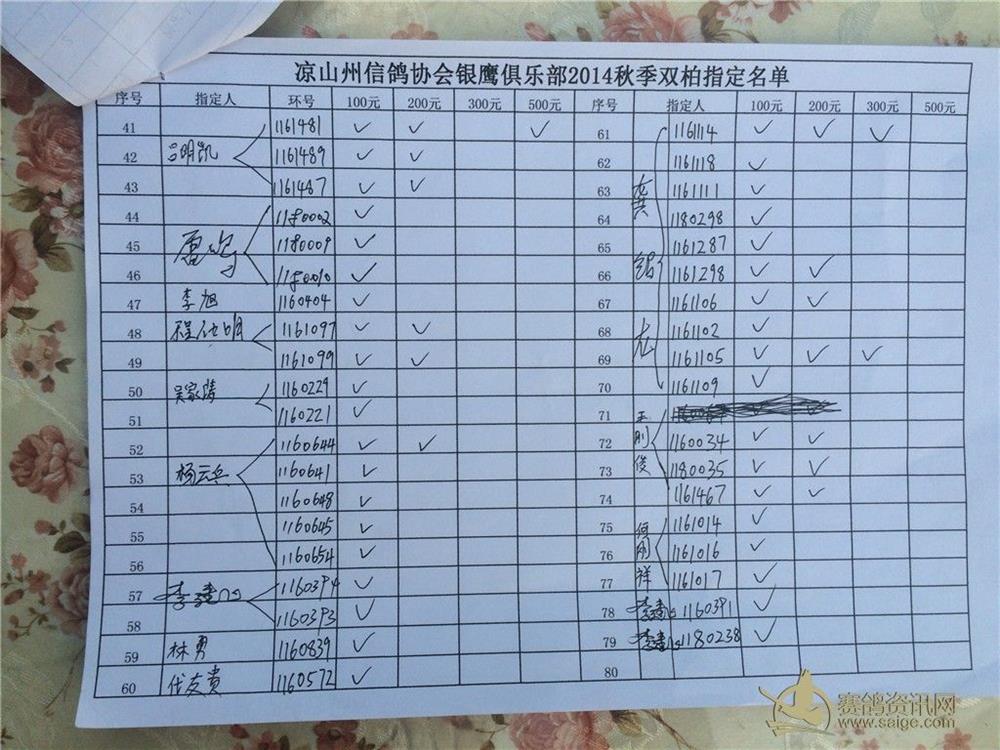 凉山州信鸽协会银鹰俱乐部2014秋季双柏指定名单
序号 指定人 环号 100元 200元 300元 500元 序号 指定人 100元 200元 300元 500元
41 1161481 ✓ ✓ ✓ 61 1161114 ✓ ✓ ✓
42 吕明凯 1161489 ✓ ✓ 62 1161118 ✓
43 1161487 ✓ ✓ 63 龚 1161111 ✓
44 1180002 ✓ 64 1180298 ✓
45 唐 1180009 ✓ 65 1161287 ✓
46 1180010 ✓ 66 1161298 ✓ ✓
47 李旭 1160404 ✓ 67 1161106 ✓ ✓
48 程 明 1161097 ✓ ✓ 68 龙 1161102 ✓
49 1161099 ✓ ✓ 69 1161105 ✓ ✓ ✓
50 吴家 1160229 ✓ 70 1161109 ✓
51 1160221 ✓ 71 王
52 1160644 ✓ ✓ 72 刚 1160034 ✓ ✓
53 杨云兵 1160641 ✓ 73 俊 1180035 ✓ ✓
54 1160648 ✓ 74 1161467 ✓ ✓
55 1160645 ✓ 75 何 1161014 ✓
56 1160654 ✓ 76 刚 1161016 ✓
57 李建 1160394 ✓ 77 祥 1161017 ✓
58 1160393 ✓ 78 李建 1160391 ✓
59 林勇 1160839 ✓ 79 李建 1180238 ✓
60 代友贵 1160572 ✓ 80
赛鸽资讯网
www.saige.com